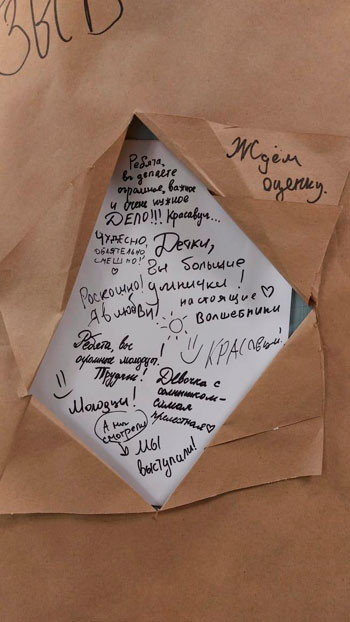 ЗЫВ
Ждём
оценку.
Ребята,
вы делаете
огромное, важное
и очень нужное
ДЕЛО!!! Красавцы...
ЧУДЕСНО,
ОБАЯТЕЛЬНО,
СМЕШНО!
♡
Детки,
Вы большие
умнички!
Роскошно!
Я в любви!
настоящие ♡
Волшебники
Ребята, вы
огромные молодцы!
Трудяги!
КРАСАВЦЫ!
Девочка с
солнышком-
самая
прелестная♡
Молодцы!
А мы
смотрели
МЫ
выступали!